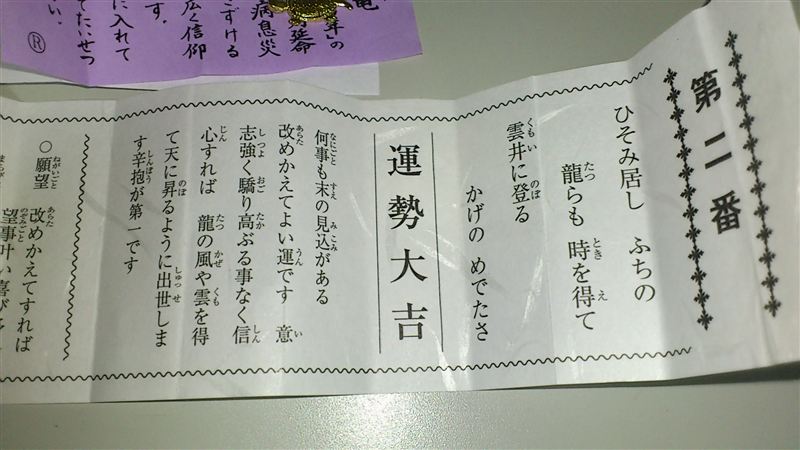 第二番
ひそみ居し ふちの
龍らも 時を得て
雲井に登る
かげの めでたさ
運勢大吉
何事も末の見込がある
改めかえてよい運です 意
志強く驕り高ぶる事なく信
心すれば 龍の風や雲を得
て天に昇るように出世しま
す辛抱が第一です
○願望 改めかえてすれば
望事叶い喜び
の
延命
病息災
さずける
す。
広く信仰
に入れて
てたいせつ
い。
Ⓡ